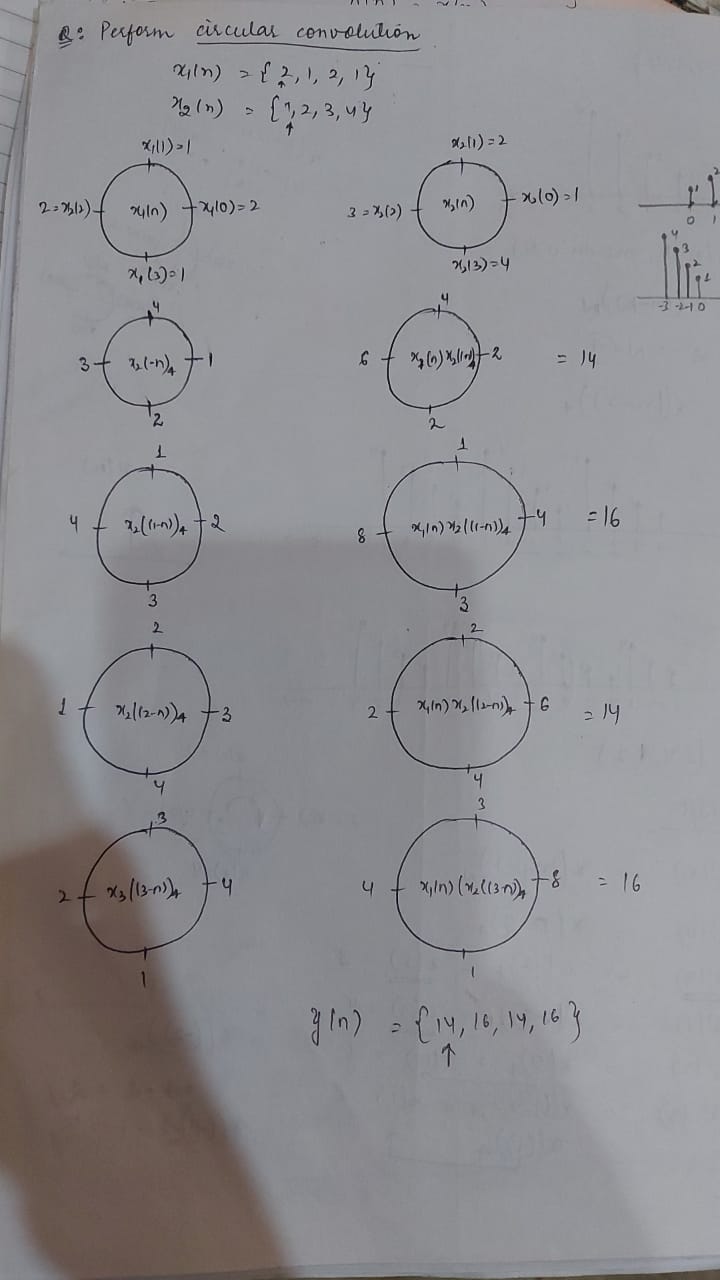 Q: Perform circular convolution
x₁(n) = { 2, 1, 2, 1}
↑
x₂(n) = {1, 2, 3, 4}
↑
x₁(1) = 1
2 = x₁(2) x₁(n) x₁(0) = 2
x₁(3) = 1
x₂(1) = 2
3 = x₂(2) x₂(n) x₂(0) = 1
x₂(3) = 4
1 2
0 1
4 3 2 1
-3 -2 -1 0
4
3 x₂(-n)₄ 1
2
4
6 x₁(n) 2 = 14
2
1
4 x₂((1-n))₄ 2
3
1
8 x₁(n) x₂((1-n))₄ 4 = 16
3
2
1 x₂((2-n))₄ 3
4
2
2 x₁(n) x₂((2-n))₄ 6 = 14
4
3
2 x₃((3-n))₄ 4
1
3
4 x₁(n) (x₂((3-n))₄ 8 = 16
1
y(n) = {14, 16, 14, 16}
↑